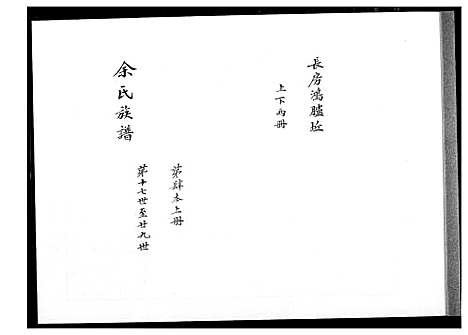 長房鴻臚坵
上下両冊
余氏族譜
第肆本上冊
第十七世至廿九世